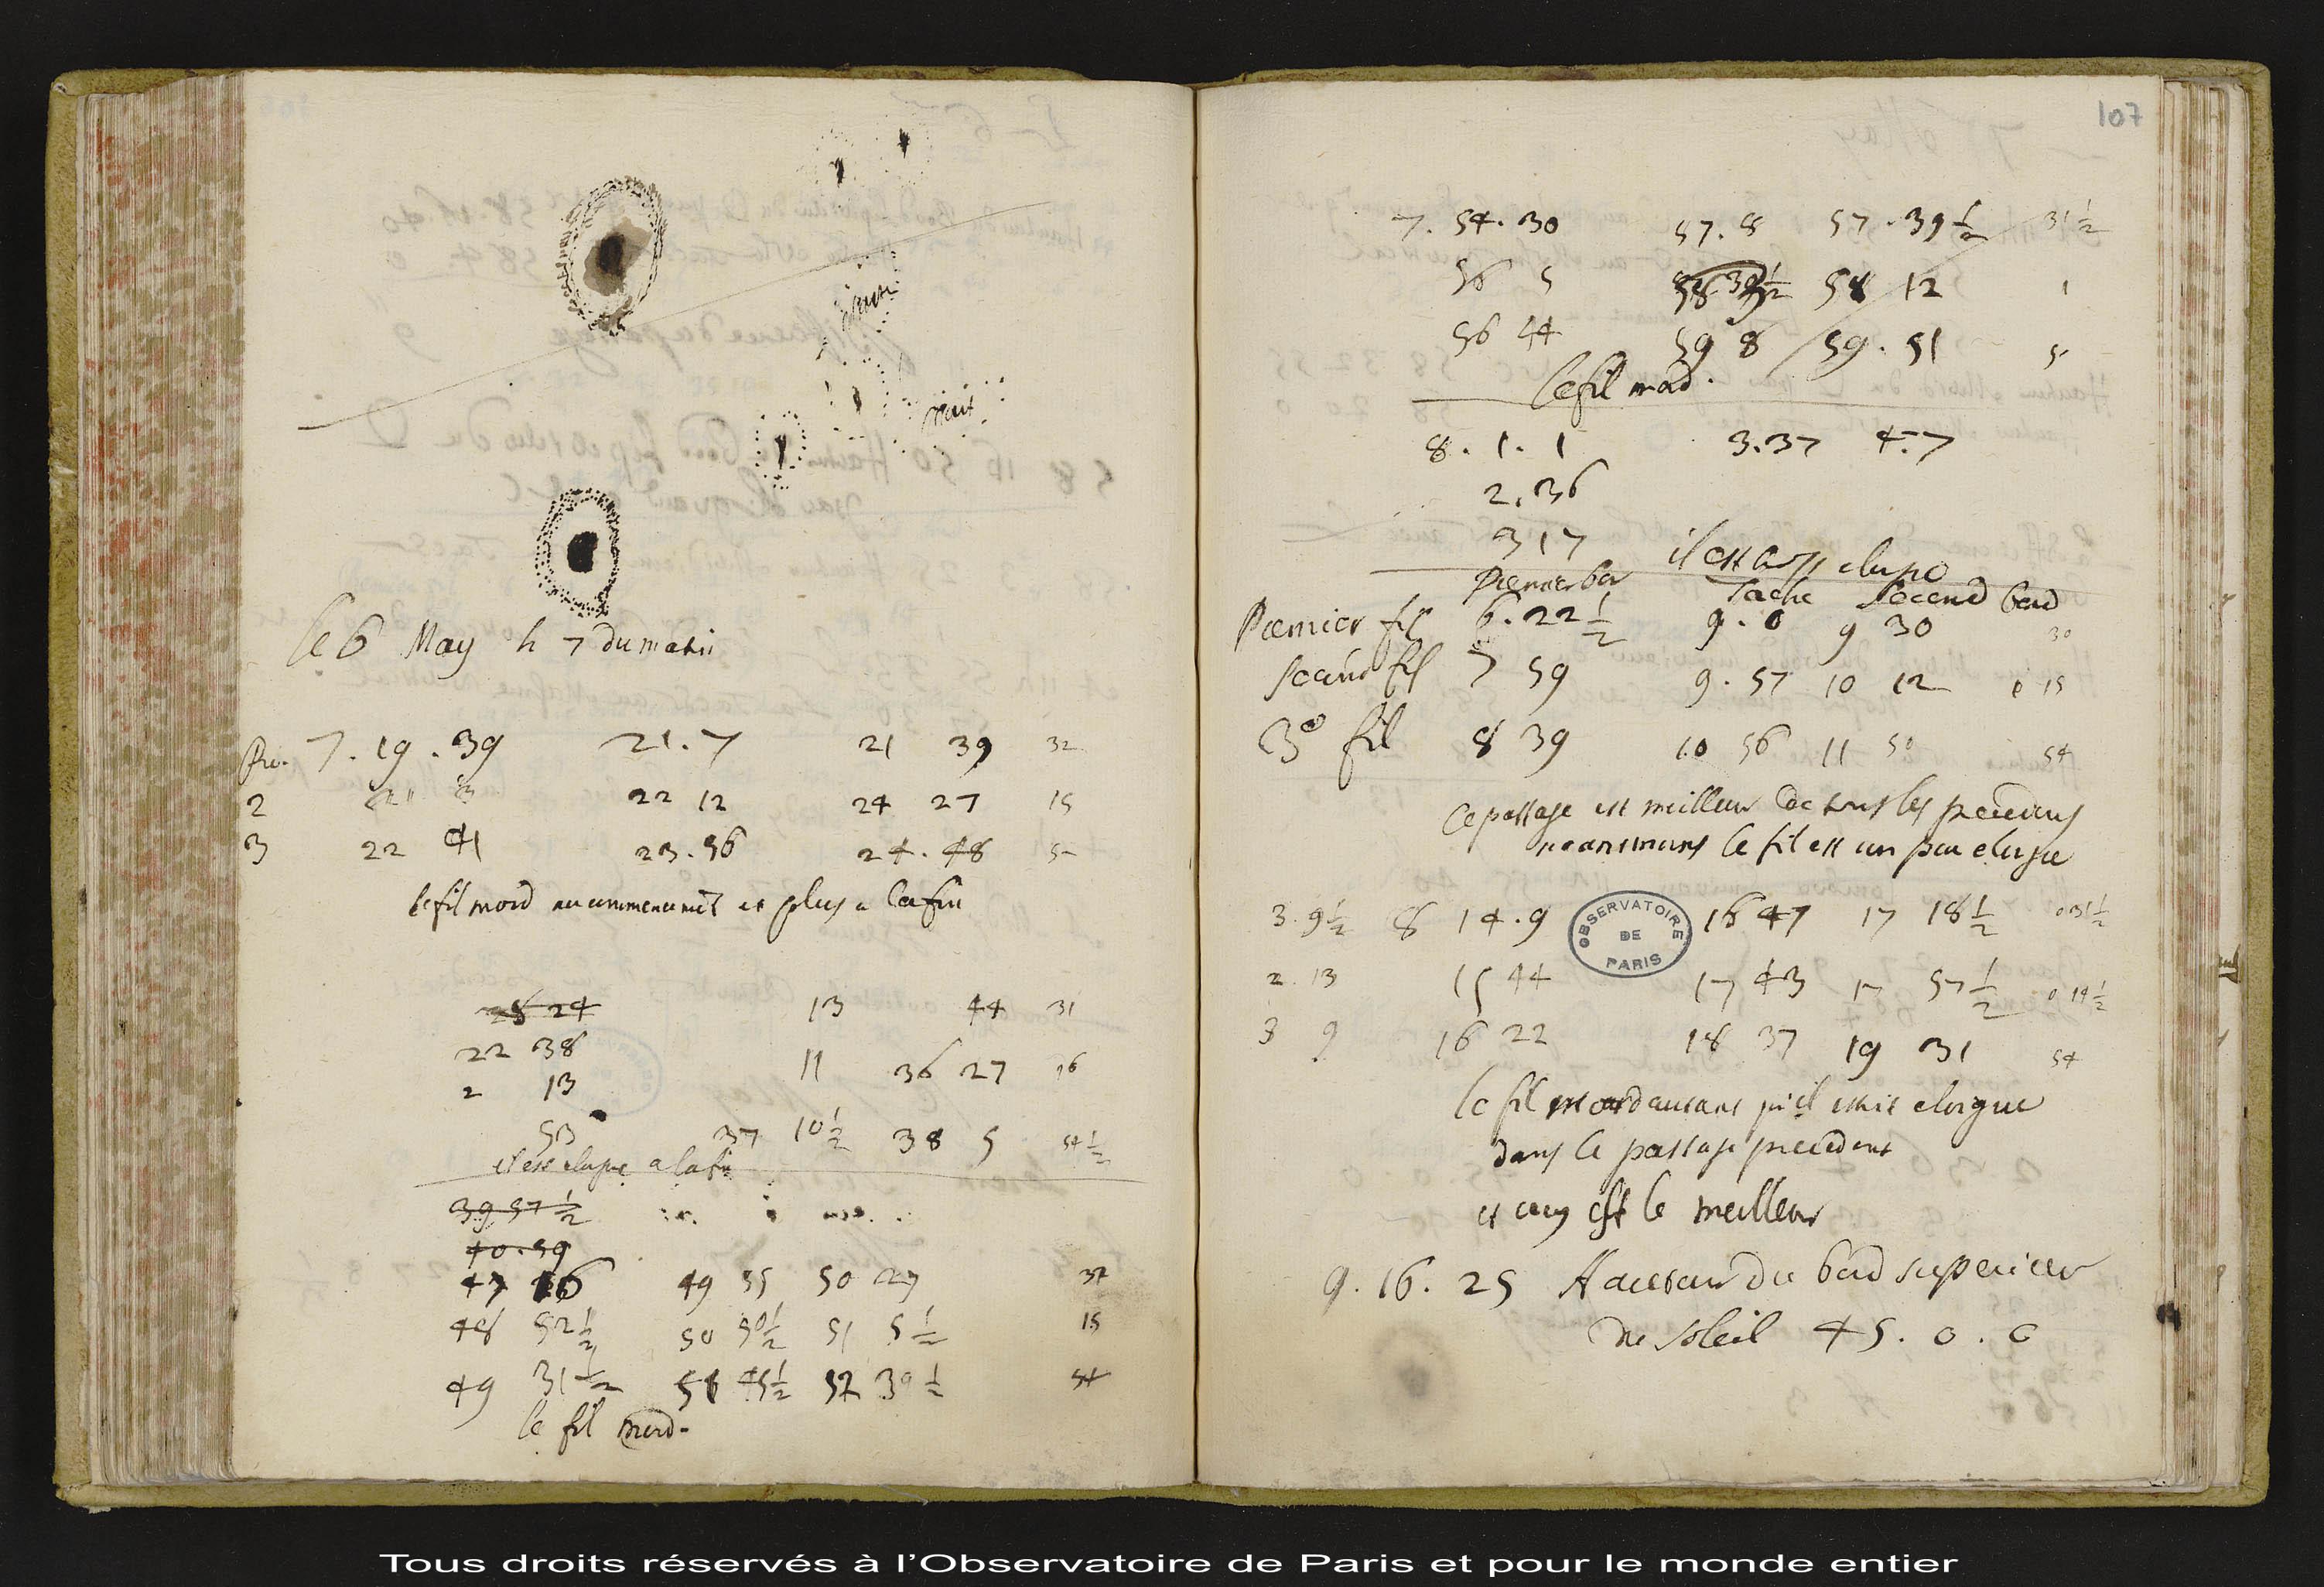 le 6 May h 7 du matin
Pre. 7. 19. 39 21. 7 21 39 32
2 22 12 24 27 15
3 22 41 23. 56 24. 48 5
le fil mord au commencemt et plus a la fin
13 44 31
22 38
2 13 11 36 27 16
53 37 10½ 38 5 54½
il est elogne a la fin
39 57½
40. 59
47 16 49 55 50 27 32
48 52½ 50 50½ 51 5½ 15
49 31½ 51 45½ 52 39½ 54
le fil mord.
107
7. 54. 30 57. 8 57. 39½ 31½
56 5 58 12 1
56 44 59 8 59. 51 5
le fil mord.
8. 1. 1 3. 37 4. 7
2. 36
3 17
il est
Premier bor Tache Second bord
Premier fil 6. 22½ 9. 0 9 30 30
second fil 7 59 9. 57 10 12 15
3e fil 8 39 10 56 11 50 54
Ce passage est meilleur de tous les precedens
neansmoins le fil est un peu elogne
3. 9½ 8 14. 9 16 47 17 18½ 0 31½
2. 13 15 44 17 43 17 57½ 0 14½
3 9 16 22 18 37 19 31 54
OBSERVATOIRE DE PARIS
le fil mord autant qu'il estoit eloigne
dans le passage precedent
et cecy est le meilleur
9. 16. 25 Hauteur du bord superieur
du soleil 45. 0. 0
Tous droits réservés à l'Observatoire de Paris et pour le monde entier